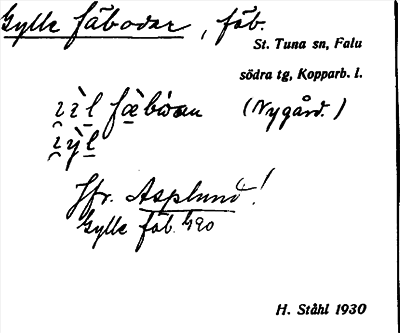 Gylle fäbodar, fäb.
St. Tuna sn, Falu
södra tg, Kopparb. l.
(Nygård.)
Jfr. Asplund!
Gylle fäb.
H. Ståhl 1930